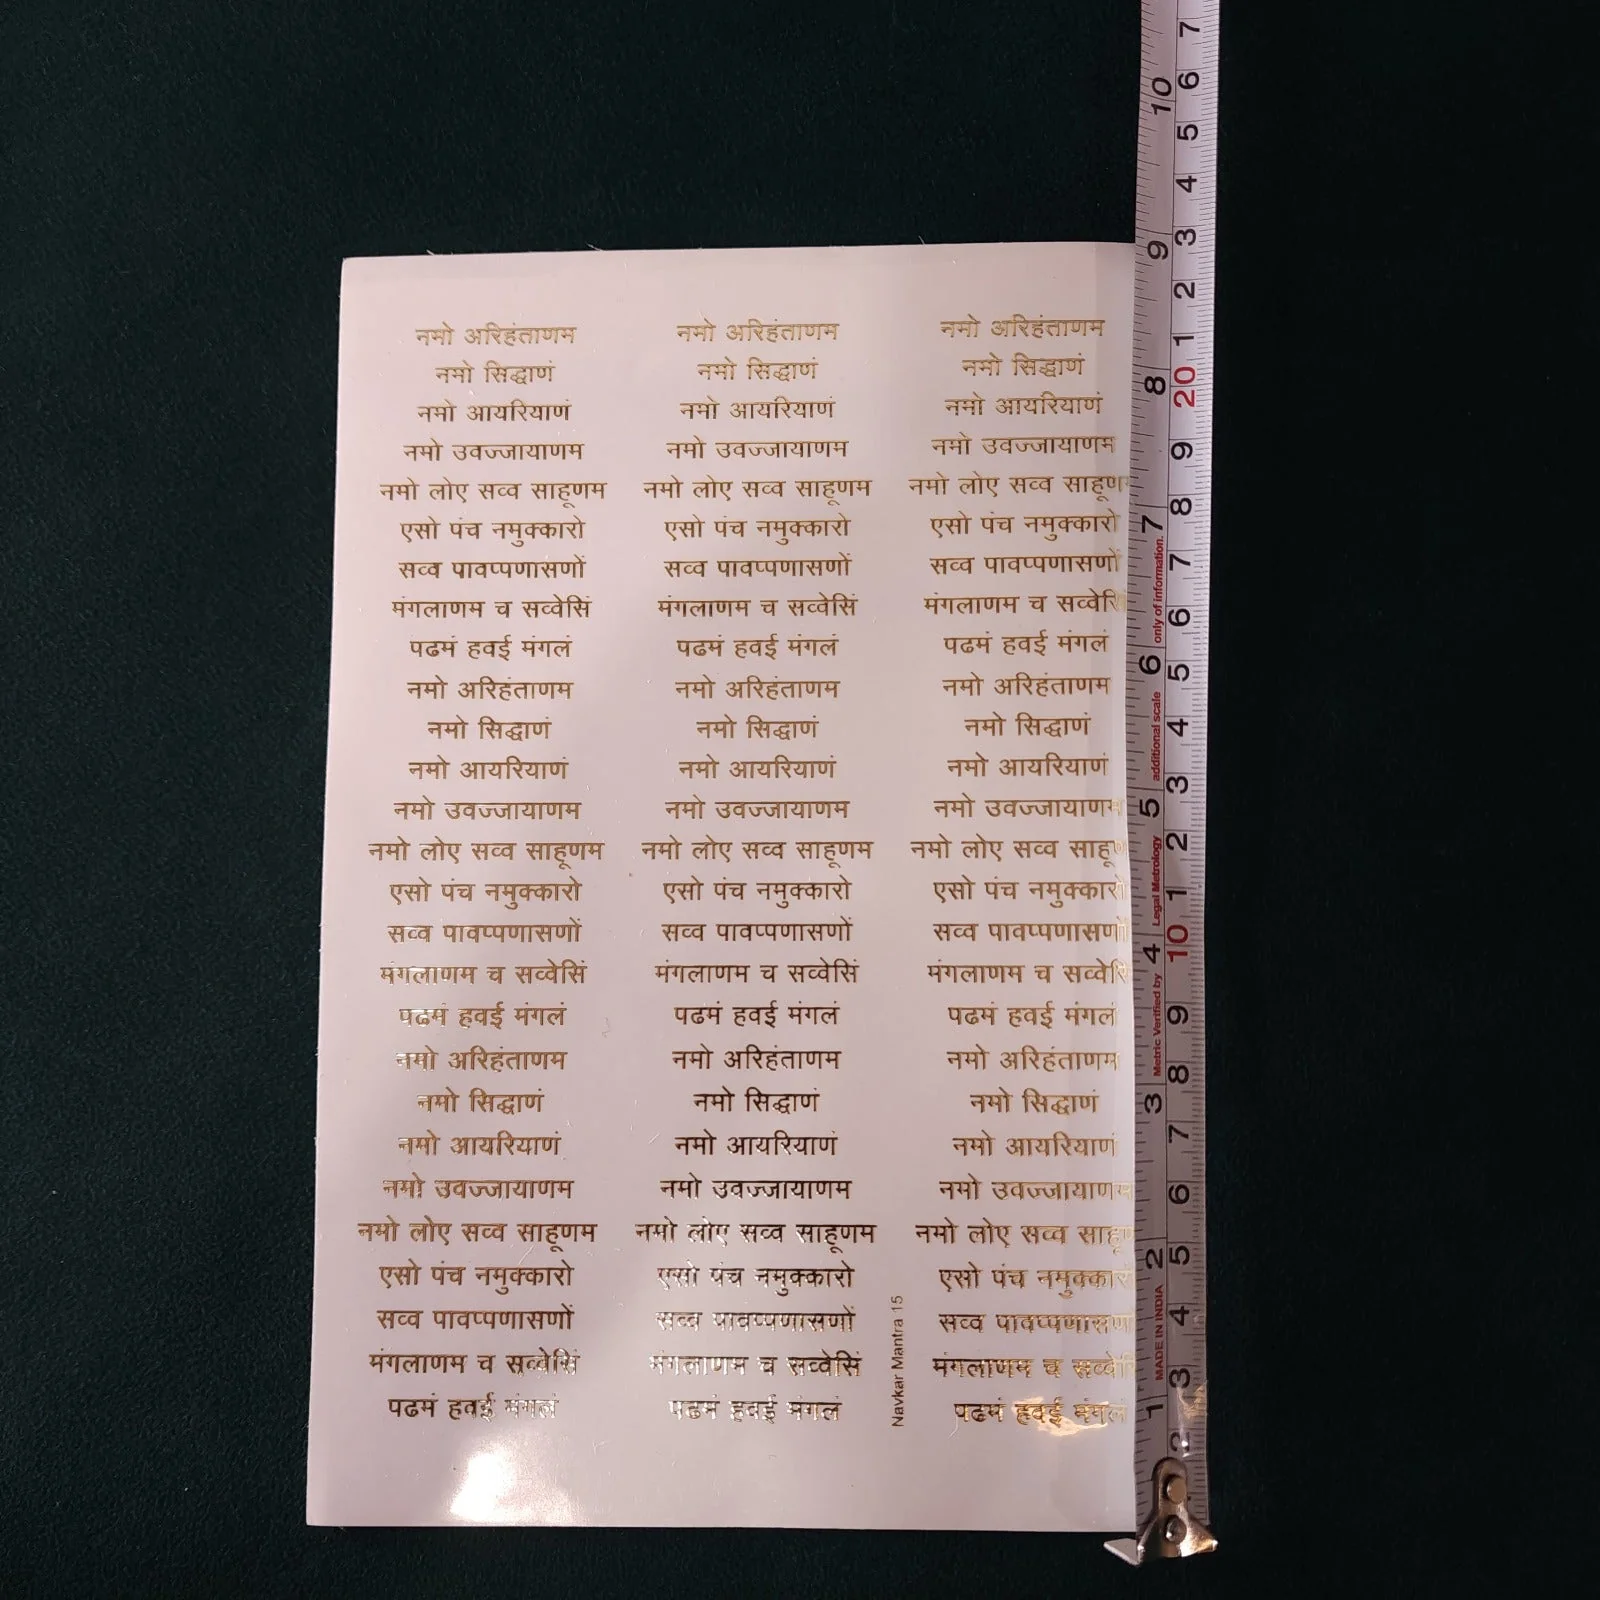 नमो अरिहंताणम नमो अरिहंताणम नमो अरिहंताणम
नमो सिद्धाणं नमो सिद्धाणं नमो सिद्धाणं
नमो आयरियाणं नमो आयरियाणं नमो आयरियाणं
नमो उवज्जायाणम नमो उवज्जायाणम नमो उवज्जायाणम
नमो लोए सव्व साहूणम नमो लोए सव्व साहूणम नमो लोए सव्व
एसो पंच नमुक्कारो एसो पंच नमुक्कारो एसो पंच नमुक्कारो
सव्व पावप्पणासणों सव्व पावप्पणासणों सव्व पावप्पणासणों
मंगलाणम च सव्वेसिं मंगलाणम च सव्वेसिं मंगलाणम च
पढमं हवई मंगलं पढमं हवई मंगलं पढमं हवई मंगलं
नमो अरिहंताणम नमो अरिहंताणम नमो अरिहंताणम
नमो सिद्धाणं नमो सिद्धाणं नमो सिद्धाणं
नमो आयरियाणं नमो आयरियाणं नमो आयरियाणं
नमो उवज्जायाणम नमो उवज्जायाणम नमो उवज्जायाणम
नमो लोए सव्व साहूणम नमो लोए सव्व साहूणम नमो लोए सव्व
एसो पंच नमुक्कारो एसो पंच नमुक्कारो एसो पंच नमुक्कारो
सव्व पावप्पणासणों सव्व पावप्पणासणों सव्व
मंगलाणम च सव्वेसिं मंगलाणम च सव्वेसिं मंगलाणम च
पढमं हवई मंगलं पढमं हवई मंगलं पढमं हवई मंगलं
नमो अरिहंताणम नमो अरिहंताणम नमो अरिहंताणम
नमो सिद्धाणं नमो सिद्धाणं नमो सिद्धाणं
नमो आयरियाणं नमो आयरियाणं नमो आयरियाणं
नमो उवज्जायाणम नमो उवज्जायाणम नमो
नमो लोए सव्व साहूणम नमो लोए सव्व साहूणम नमो लोए सव्व
एसो पंच नमुक्कारो एसो पंच नमुक्कारो एसो पंच
सव्व पावप्पणासणों सव्व पावप्पणासणों सव्व
मंगलाणम च सव्वेसिं मंगलाणम च सव्वेसिं मंगलाणम च
पढमं हवई मंगलं पढमं हवई मंगलं पढमं हवई
Navkar Mantra 15
MADE IN INDIA Metric Verified by Legal Metrology additional scale only of information.
1 2 3 4 5 6 7 8 9 10
2 3 4 5 6 7 8 9 10 1 2 3 4 5 6 7 8 9 20 1 2 3 4 5 6 7